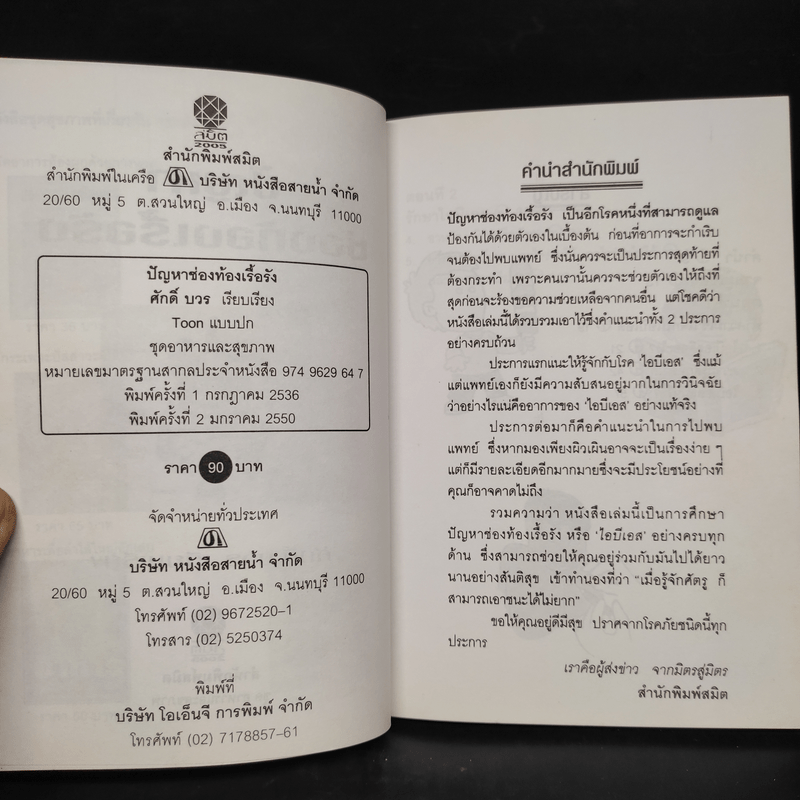 สมิต
2005
สำนักพิมพ์สมิต
สำนักพิมพ์ในเครือ บริษัท หนังสือสายน้ำ จำกัด
20/60 หมู่ 5 ต.สวนใหญ่ อ.เมือง จ.นนทบุรี 11000
ปัญหาช่องท้องเรื้อรัง
ศักดิ์ บวร เรียบเรียง
Toon แบบปก
ชุดอาหารและสุขภาพ
หมายเลขมาตรฐานสากลประจำหนังสือ 974 9629 64 7
พิมพ์ครั้งที่ 1 กรกฎาคม 2536
พิมพ์ครั้งที่ 2 มกราคม 2550
ราคา 90 บาท
จัดจำหน่ายทั่วประเทศ
บริษัท หนังสือสายน้ำ จำกัด
20/60 หมู่ 5 ต.สวนใหญ่ อ.เมือง จ.นนทบุรี 11000
โทรศัพท์ (02) 9672520-1
โทรสาร (02) 5250374
พิมพ์ที่
บริษัท โอเอ็นจี การพิมพ์ จำกัด
โทรศัพท์ (02) 7178857-61
คำนำสำนักพิมพ์
ปัญหาช่องท้องเรื้อรัง เป็นอีกโรคหนึ่งที่สามารถดูแล
ป้องกันได้ด้วยตัวเองในเบื้องต้น ก่อนที่อาการจะกำเริบ
จนต้องไปพบแพทย์ ซึ่งนั่นควรจะเป็นประการสุดท้ายที่
ต้องกระทำ เพราะคนเรานั้นควรจะช่วยตัวเองให้ถึงที่
สุดก่อนจะร้องขอความช่วยเหลือจากคนอื่น แต่โชคดีว่า
หนังสือเล่มนี้ได้รวบรวมเอาไว้ซึ่งคำแนะนำทั้ง 2 ประการ
อย่างครบถ้วน
ประการแรกแนะให้รู้จักกับโรค 'ไอบีเอส' ซึ่งแม้
แต่แพทย์เองก็ยังมีความสับสนอยู่มากในการวินิจฉัย
ว่าอย่างไรแน่คืออาการของ 'ไอบีเอส' อย่างแท้จริง
ประการต่อมาก็คือคำแนะนำในการไปพบ
แพทย์ ซึ่งหากมองเพียงผิวเผินอาจจะเป็นเรื่องง่าย ๆ
แต่ก็มีรายละเอียดอีกมากมายซึ่งจะมีประโยชน์อย่างที่
คุณก็อาจคาดไม่ถึง
รวมความว่า หนังสือเล่มนี้เป็นการศึกษา
ปัญหาช่องท้องเรื้อรัง หรือ 'ไอบีเอส' อย่างครบทุก
ด้าน ซึ่งสามารถช่วยให้คุณอยู่ร่วมกับมันไปได้ยาว
นานอย่างสันติสุข เข้าทำนองที่ว่า "เมื่อรู้จักศัตรู ก็
สามารถเอาชนะได้ไม่ยาก"
ขอให้คุณอยู่ดีมีสุข ปราศจากโรคภัยชนิดนี้ทุก
ประการ
เราคือผู้ส่งข่าว จากมิตรสู่มิตร
สำนักพิมพ์สมิต